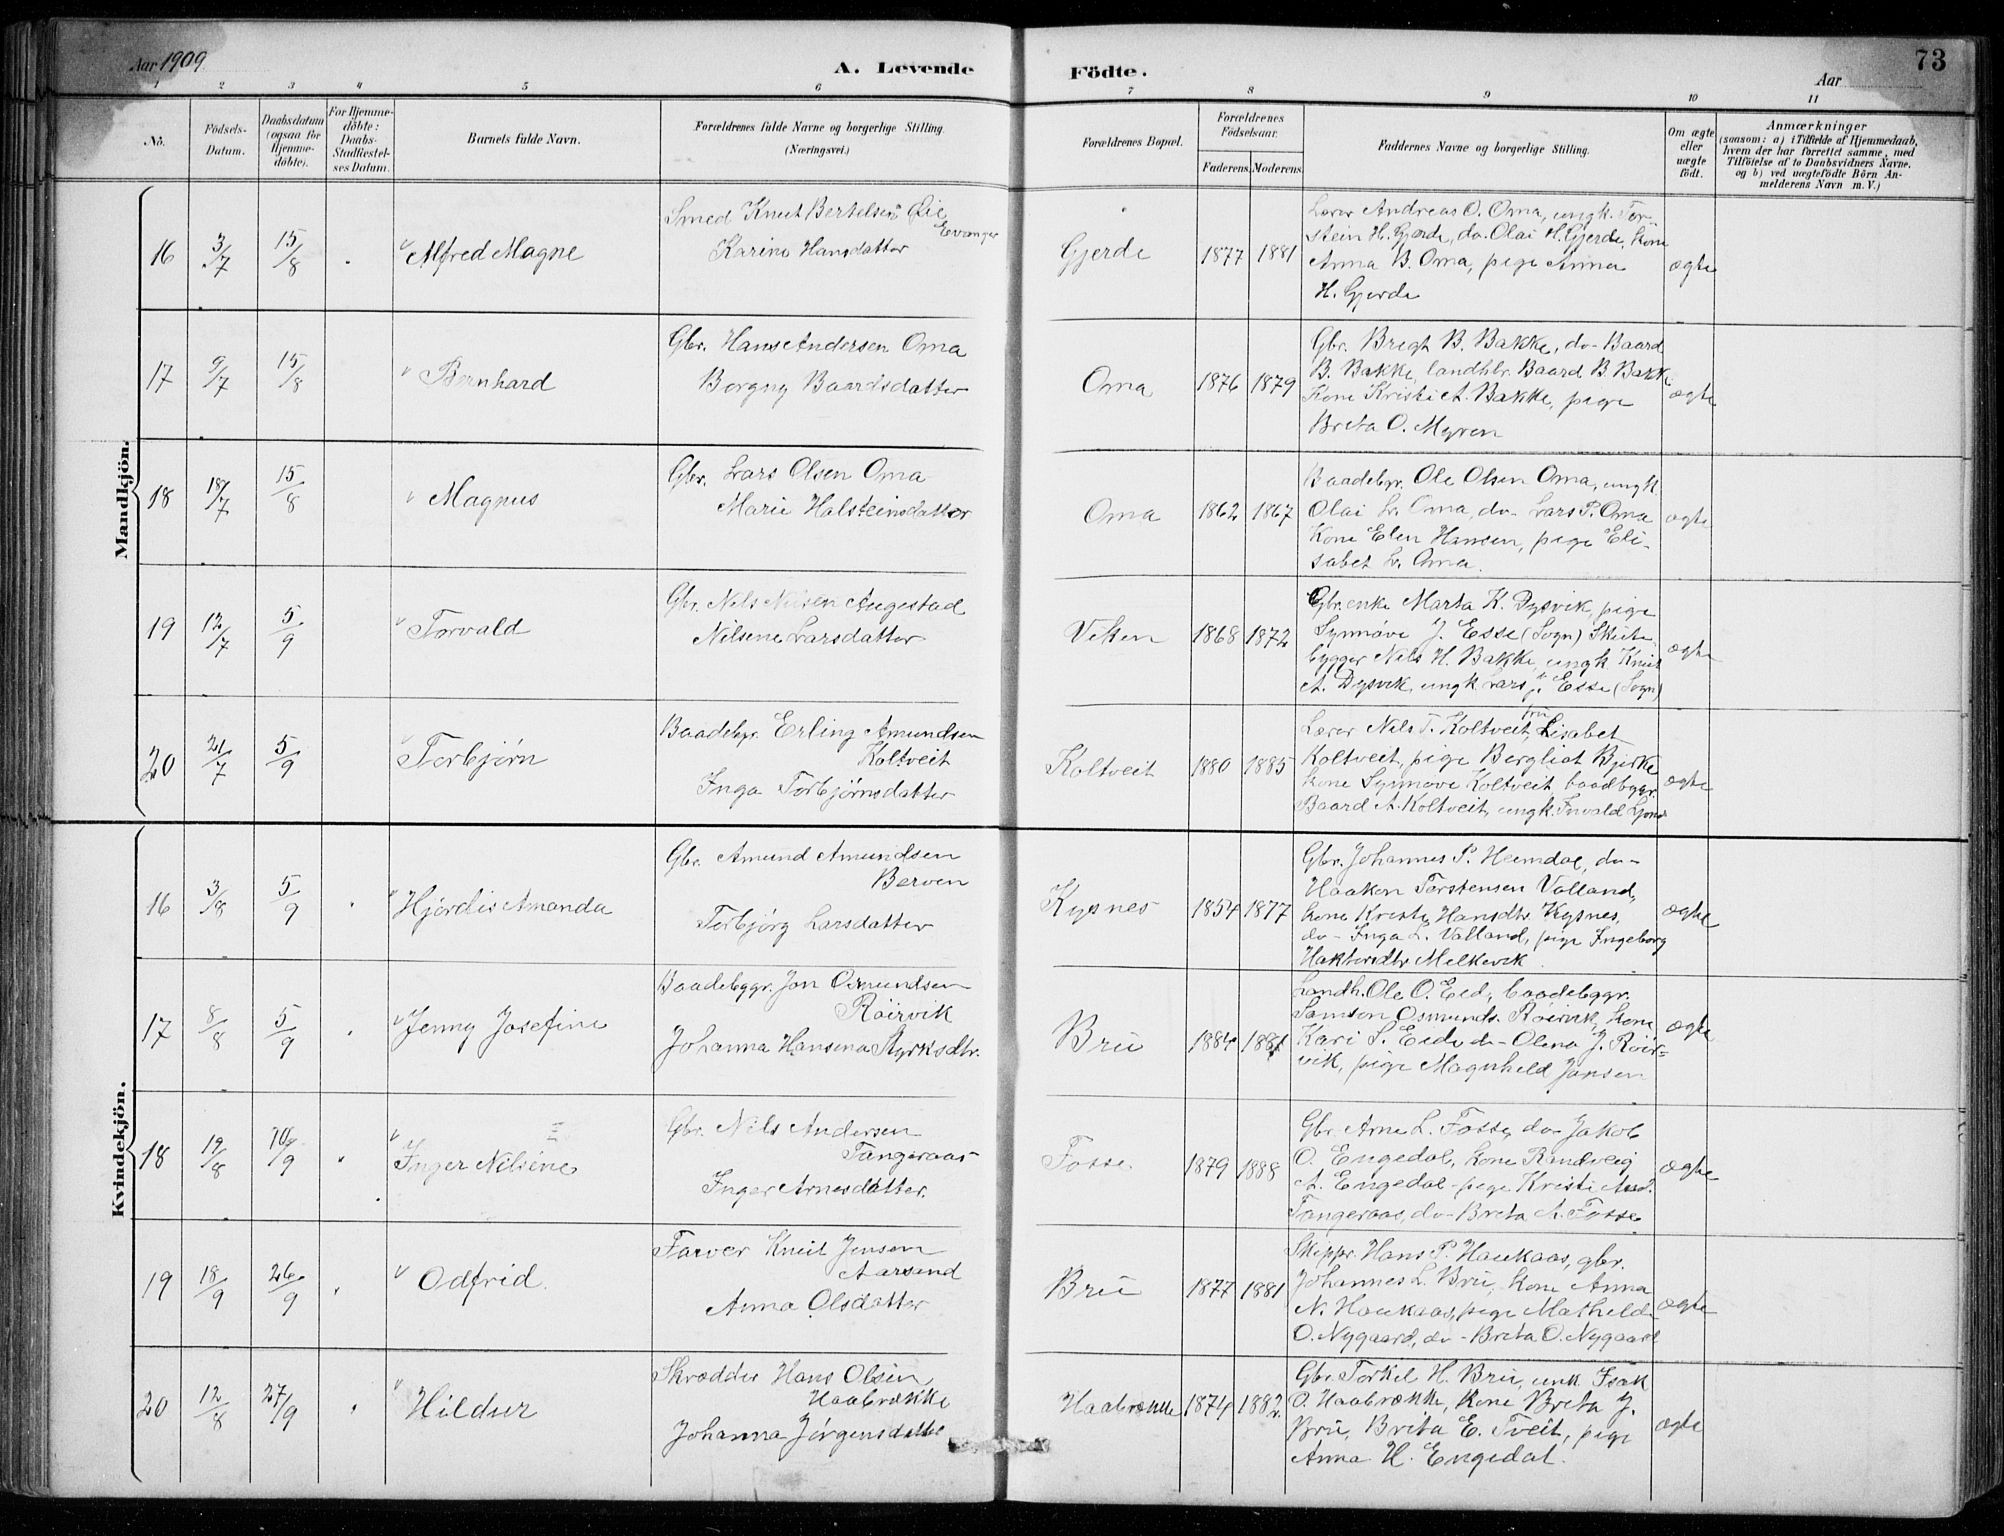 Aar 1909
A. Levende
Födte.
Aar
73
1 2 3 4 5 6 7 8 9 10 11
No.
Födsels-
Datum.
Daabsdatum
(ogsaa for
Hjemme-
döbte).
For Hjemme-
döbte:
Daabs-
Stadfæstel-
ses Datum.
Barnets fulde Navn.
Forældrenes fulde Navne og borgerlige Stilling
(Næringsvei.)
Forældrenes Bopæl.
Forældrenes
Födselsaar.
Faderens. Moderens.
Faddernes Navne og borgerlige Stilling.
Om ægte
eller
uægte
födt.
Anmærkninger
(saasom: a) i Tilfælde af Hjemmedaab,
hvem der har forrettet samme, med
Tilföielse af to Daabsvidners Navne.
og b) ved uægtefödte Börn An-
melderens Navn m. V.)
Mandkjön.
16 3/7 15/8 Alfred Magne
Smed Knut Bertelsen Øie
Evanger
Karine Hansdatter
Gjerde 1877 1881
Lærer Andreas O. Oma, ungk. Tor-
stein H. Gjerde, do. Olai H. Gjerde, kone
Anna B. Oma, pige Anna
H. Gjerde
ægte
17 9/7 15/8 Bernhard
Gbr. Hans Andersen Oma
Borgny Baardsdatter
Oma 1876 1879
Gbr. Brigt B. Bakke, do - Baard
B. Bakke, landhbr. Baard B. Bakke
Kone Kristi A. Bakke, pige
Brita O. Myren
ægte
18 18/7 15/8 Magnus
Gbr. Lars Olsen Oma
Marie Halsteinsdatter
Oma 1862 1867
Baadebgr. Ole Olsen Oma, ungk.
Olai L. Oma, do - Lars P. Oma
Kone Elen Hansen, pige Eli-
sabet L. Oma.
ægte
19 12/7 5/9 Torvald
Gbr. Nils Nilsen Augestad
Nilsene Larsdatter
Viken 1868 1872
Gbr. enke Marta K. Dysvik, pige
Synnøve J. Esse (Sogn) Skute
bygger Nils H. Bakke, ungk Knut
A. Dysvik, ungk Lars J. Esse (Sogn)
ægte
20 21/7 5/9 Torbjørn
Baadebgr. Erling Amundsen
Koltveit
Inga Torbjørnsdatter
Koltveit 1880 1885
Lærer Nils T. Koltveit, fru Lisabet
Koltveit, pige Bergliot Bjerke
kone Synnøve Koltveit baadbggr.
Baard A. Koltveit, ungk.
ægte
Kvindekjön.
16 3/8 5/9 Hjördis Amanda
Gbr. Amund Amundsen
Berven
Torbjørg Larsdatter
Kysnes 1854 1877
Gbr. Johannes P. Heimdal, do -
Haaken Torstensen Valland,
kone Kristi Hansdtr. Kysnes,
do - Inga L. Valland, pige Ingeborg
Melkevik
ægte
17 8/8 5/9 Jenny Josefine
Baadebggr. Jon Osmundsen
Röirvik
Johanna Hansena Styrksdtr.
Bru 1884 1881
Landh. Ole O. Eid, baadebggr.
Samson Osmunds. Röirvik, Kone
Kari S. Eide do - Olena J. Röir-
vik, pige Magnhild Jansen
ægte
18 19/8 Inger Nilsine
Gbr. Nils Andersen
Tangeraas
Inger Arnesdatter.
Fosse 1879 1888
Gbr. Arne L. Fosse, do Jakob
O. Engedal, kone Randveig
A. Engedal - pige Kristi And.
Tangeraas, do - Brita A. Fosse
ægte
19 18/9 26/9 Odfrid.
Farver Knut Jensen
Aarsand
Anna Olsdatter
Bru 1877 1881
Skippr. Hans P. Haukaas, gbr.
Johannes L. Bru, kone Anna
N. Haukaas, pige Mathilde
O. Nygaard, do - Brita O. Nygaard
ægte
20 12/8 27/9 Hildur
Skrædder Hans Olsen
Haabrække
Johanna Jörgensdatter
Haabrække 1874 1882
Gbr. Torkel H. Bru, unk. Isak
O. Haabrække, Kone Brita J.
Bru, Brita E. Tveit, pige
Anna H. Engedal.
ægte